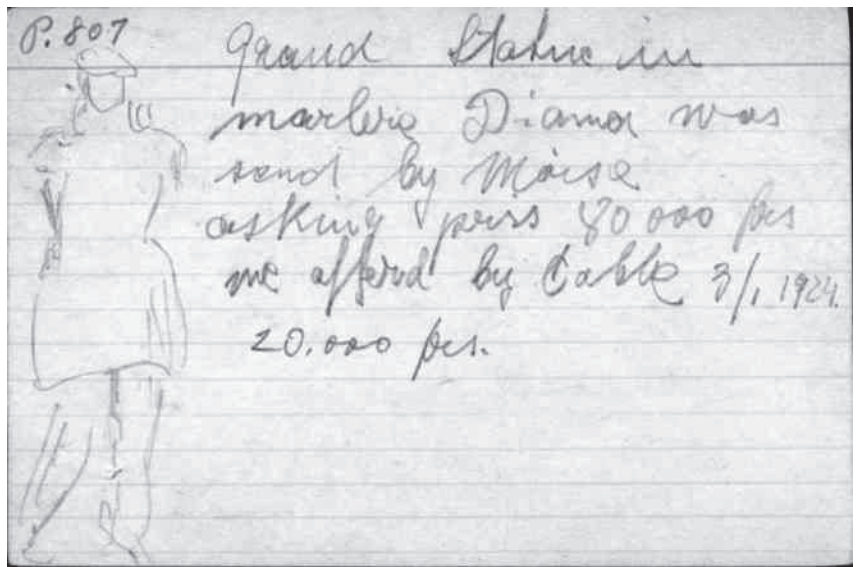 P.807
Grand Statue in
marbre Diana was
send by Moise
asking priss 80 000 frs
we afferd by Cable 3/1 1924.
20.000 frs.